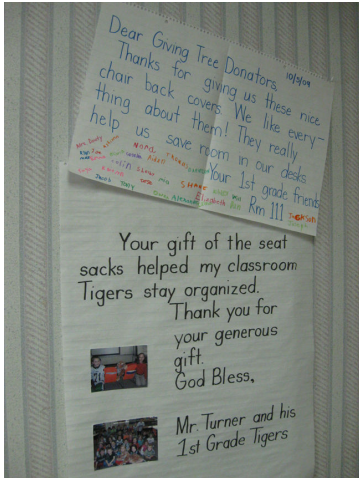 Dear Giving Tree Donators, 10/5/09
Thanks for giving us these nice
chair back covers. We like every-
thing about them! They really
help us save room in our desks.
Your 1st grade friends
Rm 111
Nora
Shane
Elizabeth
Jackson
Your gift of the seat
sacks helped my classroom
Tigers stay organized.
Thank you for
your generous
gift.
God Bless,
Mr. Turner and his
1st Grade Tigers